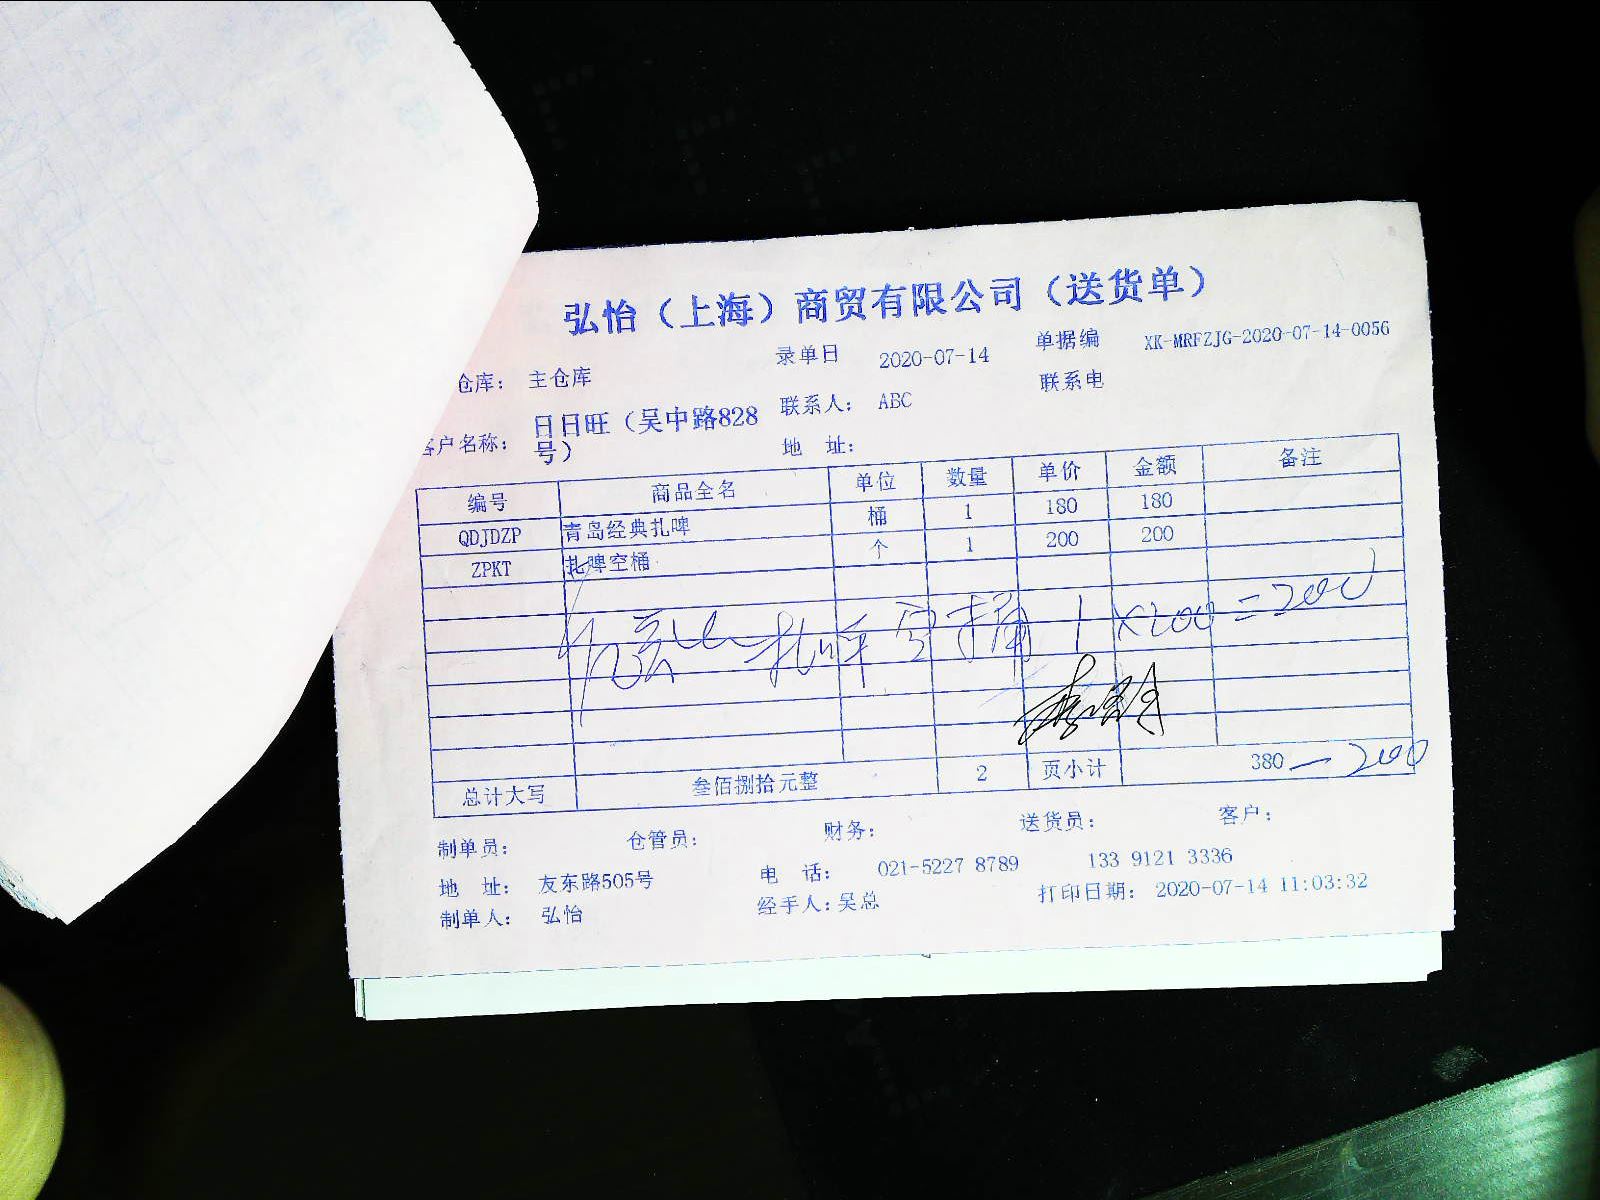 弘怡（上海）商贸有限公司（送货单）
仓库： 主仓库 录单日 2020-07-14 单据编 XK-MRFZJG-2020-07-14-0056
客户名称： 日日旺（吴中路828号） 联系人： ABC 联系电
地 址：
编号 商品全名 单位 数量 单价 金额 备注
QDJDZP 青岛经典扎啤 桶 1 180 180
ZPKT 扎啤空桶 个 1 200 200
扎啤空桶 1 X200=200
总计大写 叁佰捌拾元整 2 页小计 380 — 200
制单员： 仓管员： 财务： 送货员： 客户：
地 址： 友东路505号 电 话： 021-5227 8789 133 9121 3336
制单人： 弘怡 经手人：吴总 打印日期： 2020-07-14 11:03:32